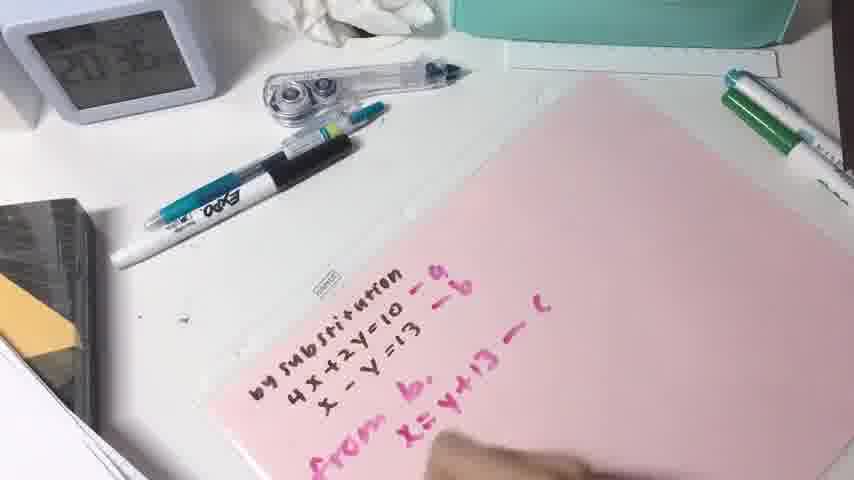 20:36
EXPO
by substitution
4x+2y=10 - a
x - y = 13 - b
from b.
x = y+13 - c